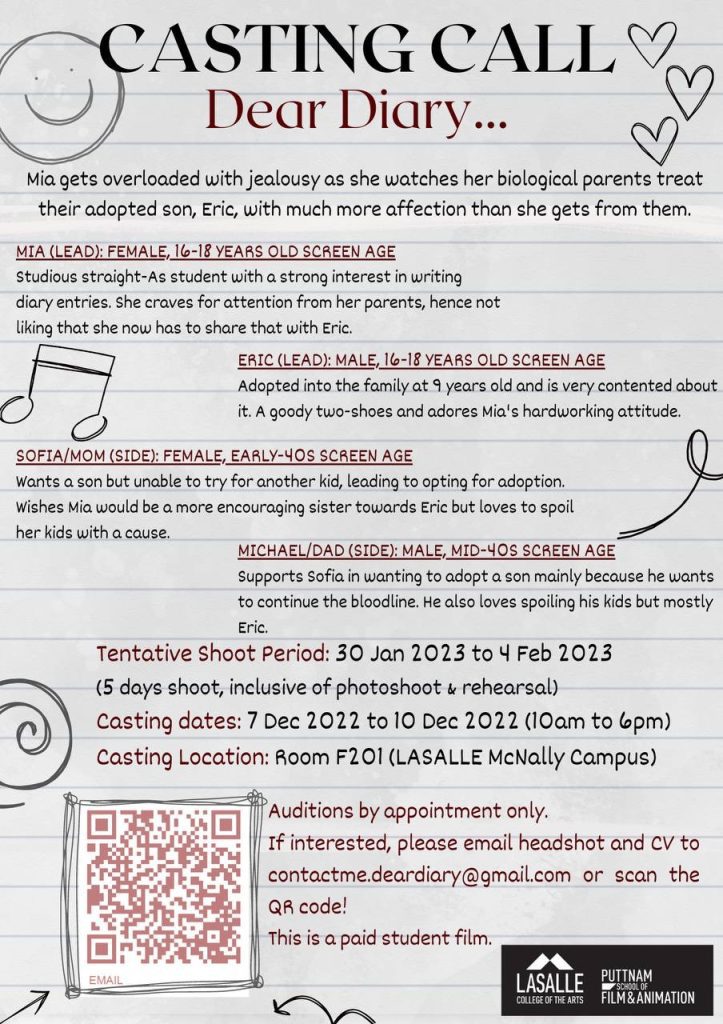 CASTING CALL
Dear Diary...
Mia gets overloaded with jealousy as she watches her biological parents treat
their adopted son, Eric, with much more affection than she gets from them.
MIA (LEAD): FEMALE, 16-18 YEARS OLD SCREEN AGE
Studious straight-As student with a strong interest in writing
diary entries. She craves for attention from her parents, hence not
liking that she now has to share that with Eric.
ERIC (LEAD): MALE, 16-18 YEARS OLD SCREEN AGE
Adopted into the family at 9 years old and is very contented about
it. A goody two-shoes and adores Mia's hardworking attitude.
SOFIA/MOM (SIDE): FEMALE, EARLY-40S SCREEN AGE
Wants a son but unable to try for another kid, leading to opting for adoption.
Wishes Mia would be a more encouraging sister towards Eric but loves to spoil
her kids with a cause.
MICHAEL/DAD (SIDE): MALE, MID-40S SCREEN AGE
Supports Sofia in wanting to adopt a son mainly because he wants
to continue the bloodline. He also loves spoiling his kids but mostly
Eric.
Tentative Shoot Period: 30 Jan 2023 to 4 Feb 2023
(5 days shoot, inclusive of photoshoot & rehearsal)
Casting dates: 7 Dec 2022 to 10 Dec 2022 (10am to 6pm)
Casting Location: Room F201 (LASALLE McNally Campus)
Auditions by appointment only.
If interested, please email headshot and CV to
contactme.deardiary@gmail.com or scan the
QR code!
This is a paid student film.
EMAIL
LASALLE
COLLEGE OF THE ARTS
PUTTNAM
SCHOOL OF
FILM & ANIMATION